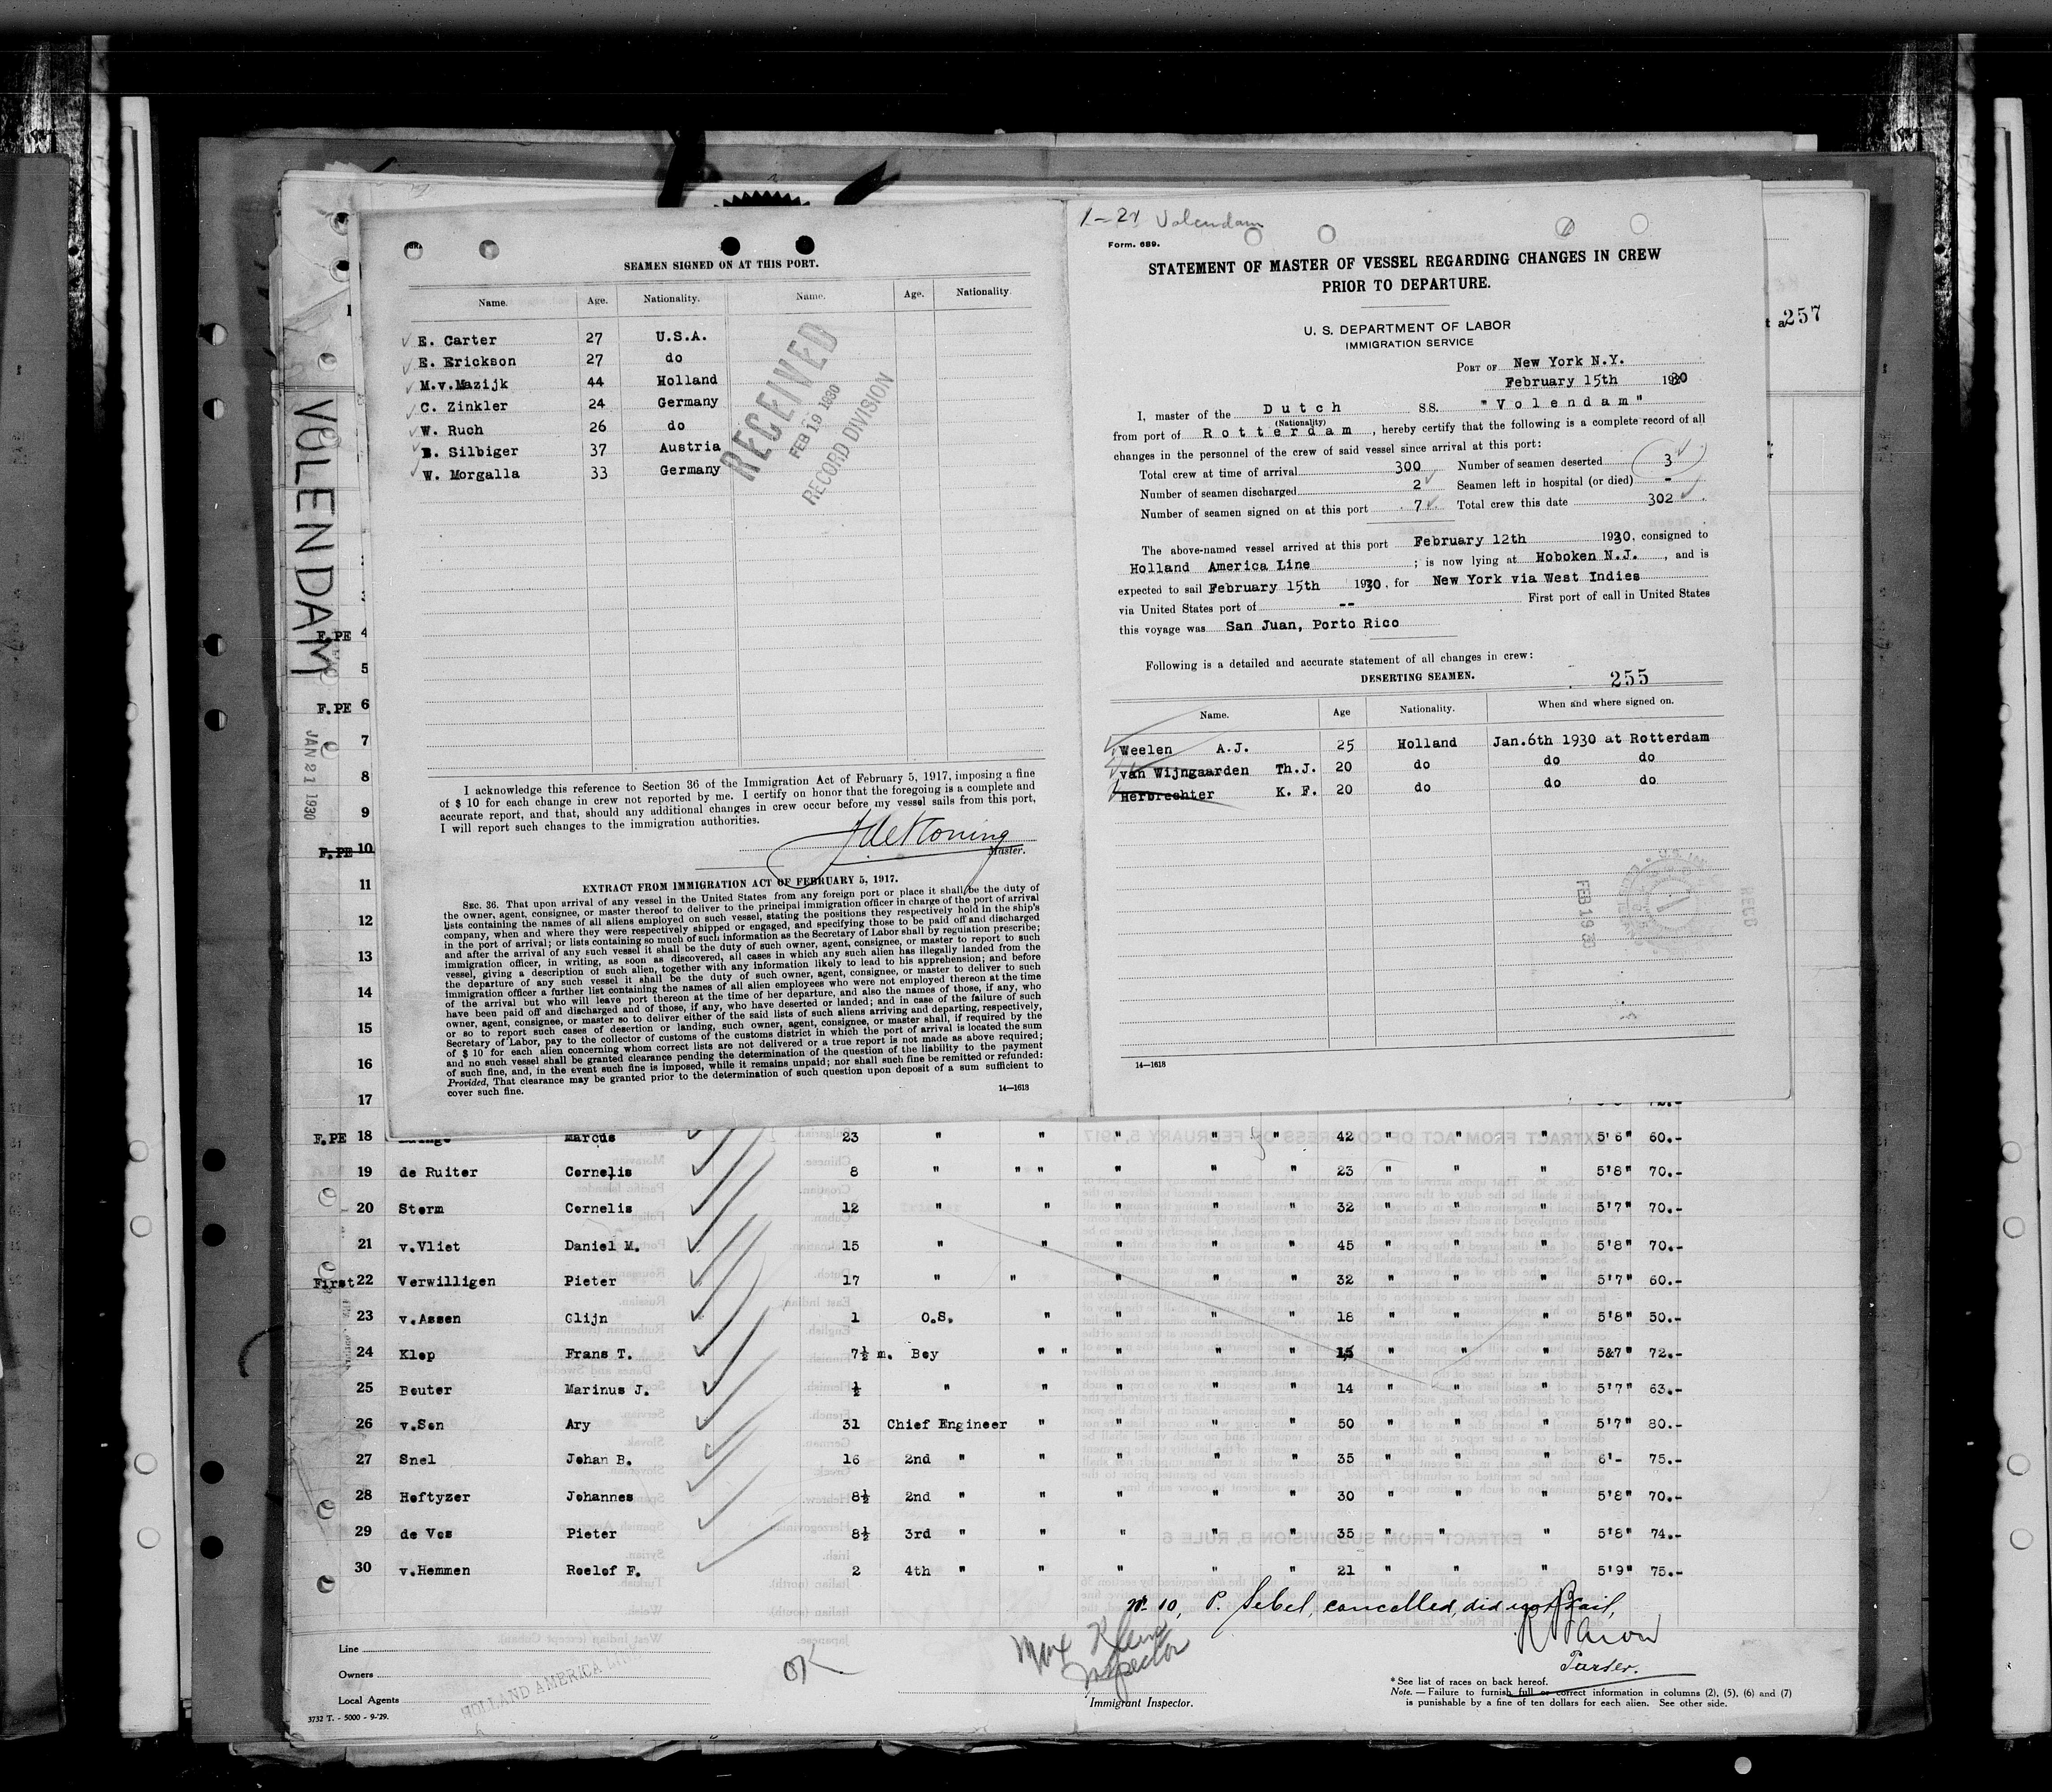 1-21 Volendam
257
VOLENDAM
JAN 21 1930
SEAMEN SIGNED ON AT THIS PORT.
Name. Age. Nationality. Name. Age. Nationality.
E. Carter 27 U.S.A.
E. Erickson 27 do
M.v.Mazijk 44 Holland
C. Zinkler 24 Germany
W. Ruch 26 do
B. Silbiger 37 Austria
W. Morgalla 33 Germany
RECEIVED
FEB 19 1930
RECORD DIVISION
I acknowledge this reference to Section 36 of the Immigration Act of February 5, 1917, imposing a fine
of $ 10 for each change in crew not reported by me. I certify on honor that the foregoing is a complete and
accurate report, and that, should any additional changes in crew occur before my vessel sails from this port,
I will report such changes to the immigration authorities.
Master.
EXTRACT FROM IMMIGRATION ACT OF FEBRUARY 5, 1917.
SEC. 36. That upon arrival of any vessel in the United States from any foreign port or place it shall be the duty of
the owner, agent, consignee, or master thereof to deliver to the principal immigration officer in charge of the port of arrival
lists containing the names of all aliens employed on such vessel, stating the positions they respectively hold in the ship's
company, when and where they were respectively shipped or engaged, and specifying those to be paid off and discharged
in the port of arrival; or lists containing so much of such information as the Secretary of Labor shall by regulation prescribe;
and after the arrival of any such vessel it shall be the duty of such owner, agent, consignee, or master to report to such
immigration officer, in writing, as soon as discovered, all cases in which any such alien has illegally landed from the
vessel, giving a description of such alien, together with any information likely to lead to his apprehension; and before
the departure of any such vessel it shall be the duty of such owner, agent, consignee, or master to deliver to such
immigration officer a further list containing the names of all alien employees who were not employed thereon at the time
of the arrival but who will leave port thereon at the time of her departure, and also the names of those, if any, who
have been paid off and discharged and of those, if any, who have deserted or landed; and in case of the failure of such
owner, agent, consignee, or master so to deliver either of the said lists of such aliens arriving and departing, respectively,
or so to report such cases of desertion or landing, such owner, agent, consignee, or master shall, if required by the
Secretary of Labor, pay to the collector of customs of the customs district in which the port of arrival is located the sum
of $ 10 for each alien concerning whom correct lists are not delivered or a true report is not made as above required;
and no such vessel shall be granted clearance pending the determination of the question of the liability to the payment
of such fine, and, in the event such fine is imposed, while it remains unpaid; nor shall such fine be remitted or refunded:
Provided, That clearance may be granted prior to the determination of such question upon deposit of a sum sufficient to
cover such fine.
14—1618
Form. 689.
STATEMENT OF MASTER OF VESSEL REGARDING CHANGES IN CREW
PRIOR TO DEPARTURE.
U. S. DEPARTMENT OF LABOR
IMMIGRATION SERVICE
PORT OF New York N.Y.
February 15th 1930
I, master of the Dutch SS. "Volendam"
(Nationality)
from port of Rotterdam, hereby certify that the following is a complete record of all
changes in the personnel of the crew of said vessel since arrival at this port:
Total crew at time of arrival 300 Number of seamen deserted 3
Number of seamen discharged 2 Seamen left in hospital (or died) -
Number of seamen signed on at this port 7 Total crew this date 302
The above-named vessel arrived at this port February 12th 1930, consigned to
Holland America Line ; is now lying at Hoboken N.J. , and is
expected to sail February 15th 1930, for New York via West Indies
via United States port of -- First port of call in United States
this voyage was San Juan, Porto Rico
Following is a detailed and accurate statement of all changes in crew:
DESERTING SEAMEN. 255
Name. Age Nationality. When and where signed on.
Weelen A.J. 25 Holland Jan.6th 1930 at Rotterdam
van Wijngaarden Th.J. 20 do do do
Herbrechter K. F. 20 do do do
FEB 19 30
RECD
14—1618
F.PE 4
5
F.PE 6
7
8
9
F.PE 10
11
12
13
14
15
16
17
F.PE 18 Marcus 23 " " " " " 42 " " " 5'6" 60.-
19 de Ruiter Cornelis 8 " " " " " " 23 " " " 5'8" 70.-
20 Storm Cornelis 12 " " " " " 32 " " " 5'7" 70.-
21 v.Vliet Daniel M. 15 " " " " " 45 " " " 5'8" 70.-
First 22 Verwilligen Pieter 17 " " " " " 32 " " " 5'7" 60.-
23 v.Assen Glijn 1 O.S. " " " " 18 " " " 5'8" 50.-
24 Klop Frans T. 7½ m. Boy " " " " " 15 " " " 5&7" 72.-
25 Bouter Marinus J. ½ " " " " " 14 " " " 5'7" 63.-
26 v.Son Ary 31 Chief Engineer " " " " 50 " " " 5'7" 80.-
27 Snel Johan B. 16 2nd " " " " " 35 " " " 6'- 75.-
28 Hoftyzer Johannes 8½ 2nd " " " " " 30 " " " 5'8" 70.-
29 de Vos Pieter 8½ 3rd " " " " " 35 " " " 5'8" 74.-
30 v.Hemmen Roelof F. 2 4th " " " " " 21 " " " 5'9" 75.-
No 10, P. Sebel, cancelled, did not sail,
Purser.
Line
Owners
Local Agents
HOLLAND AMERICA LINE
OK
Max Klein
Inspector
Immigrant Inspector.
* See list of races on back hereof.
Note. — Failure to furnish full or correct information in columns (2), (5), (6) and (7)
is punishable by a fine of ten dollars for each alien. See other side.
3732 T. - 5000 - 9-'29.